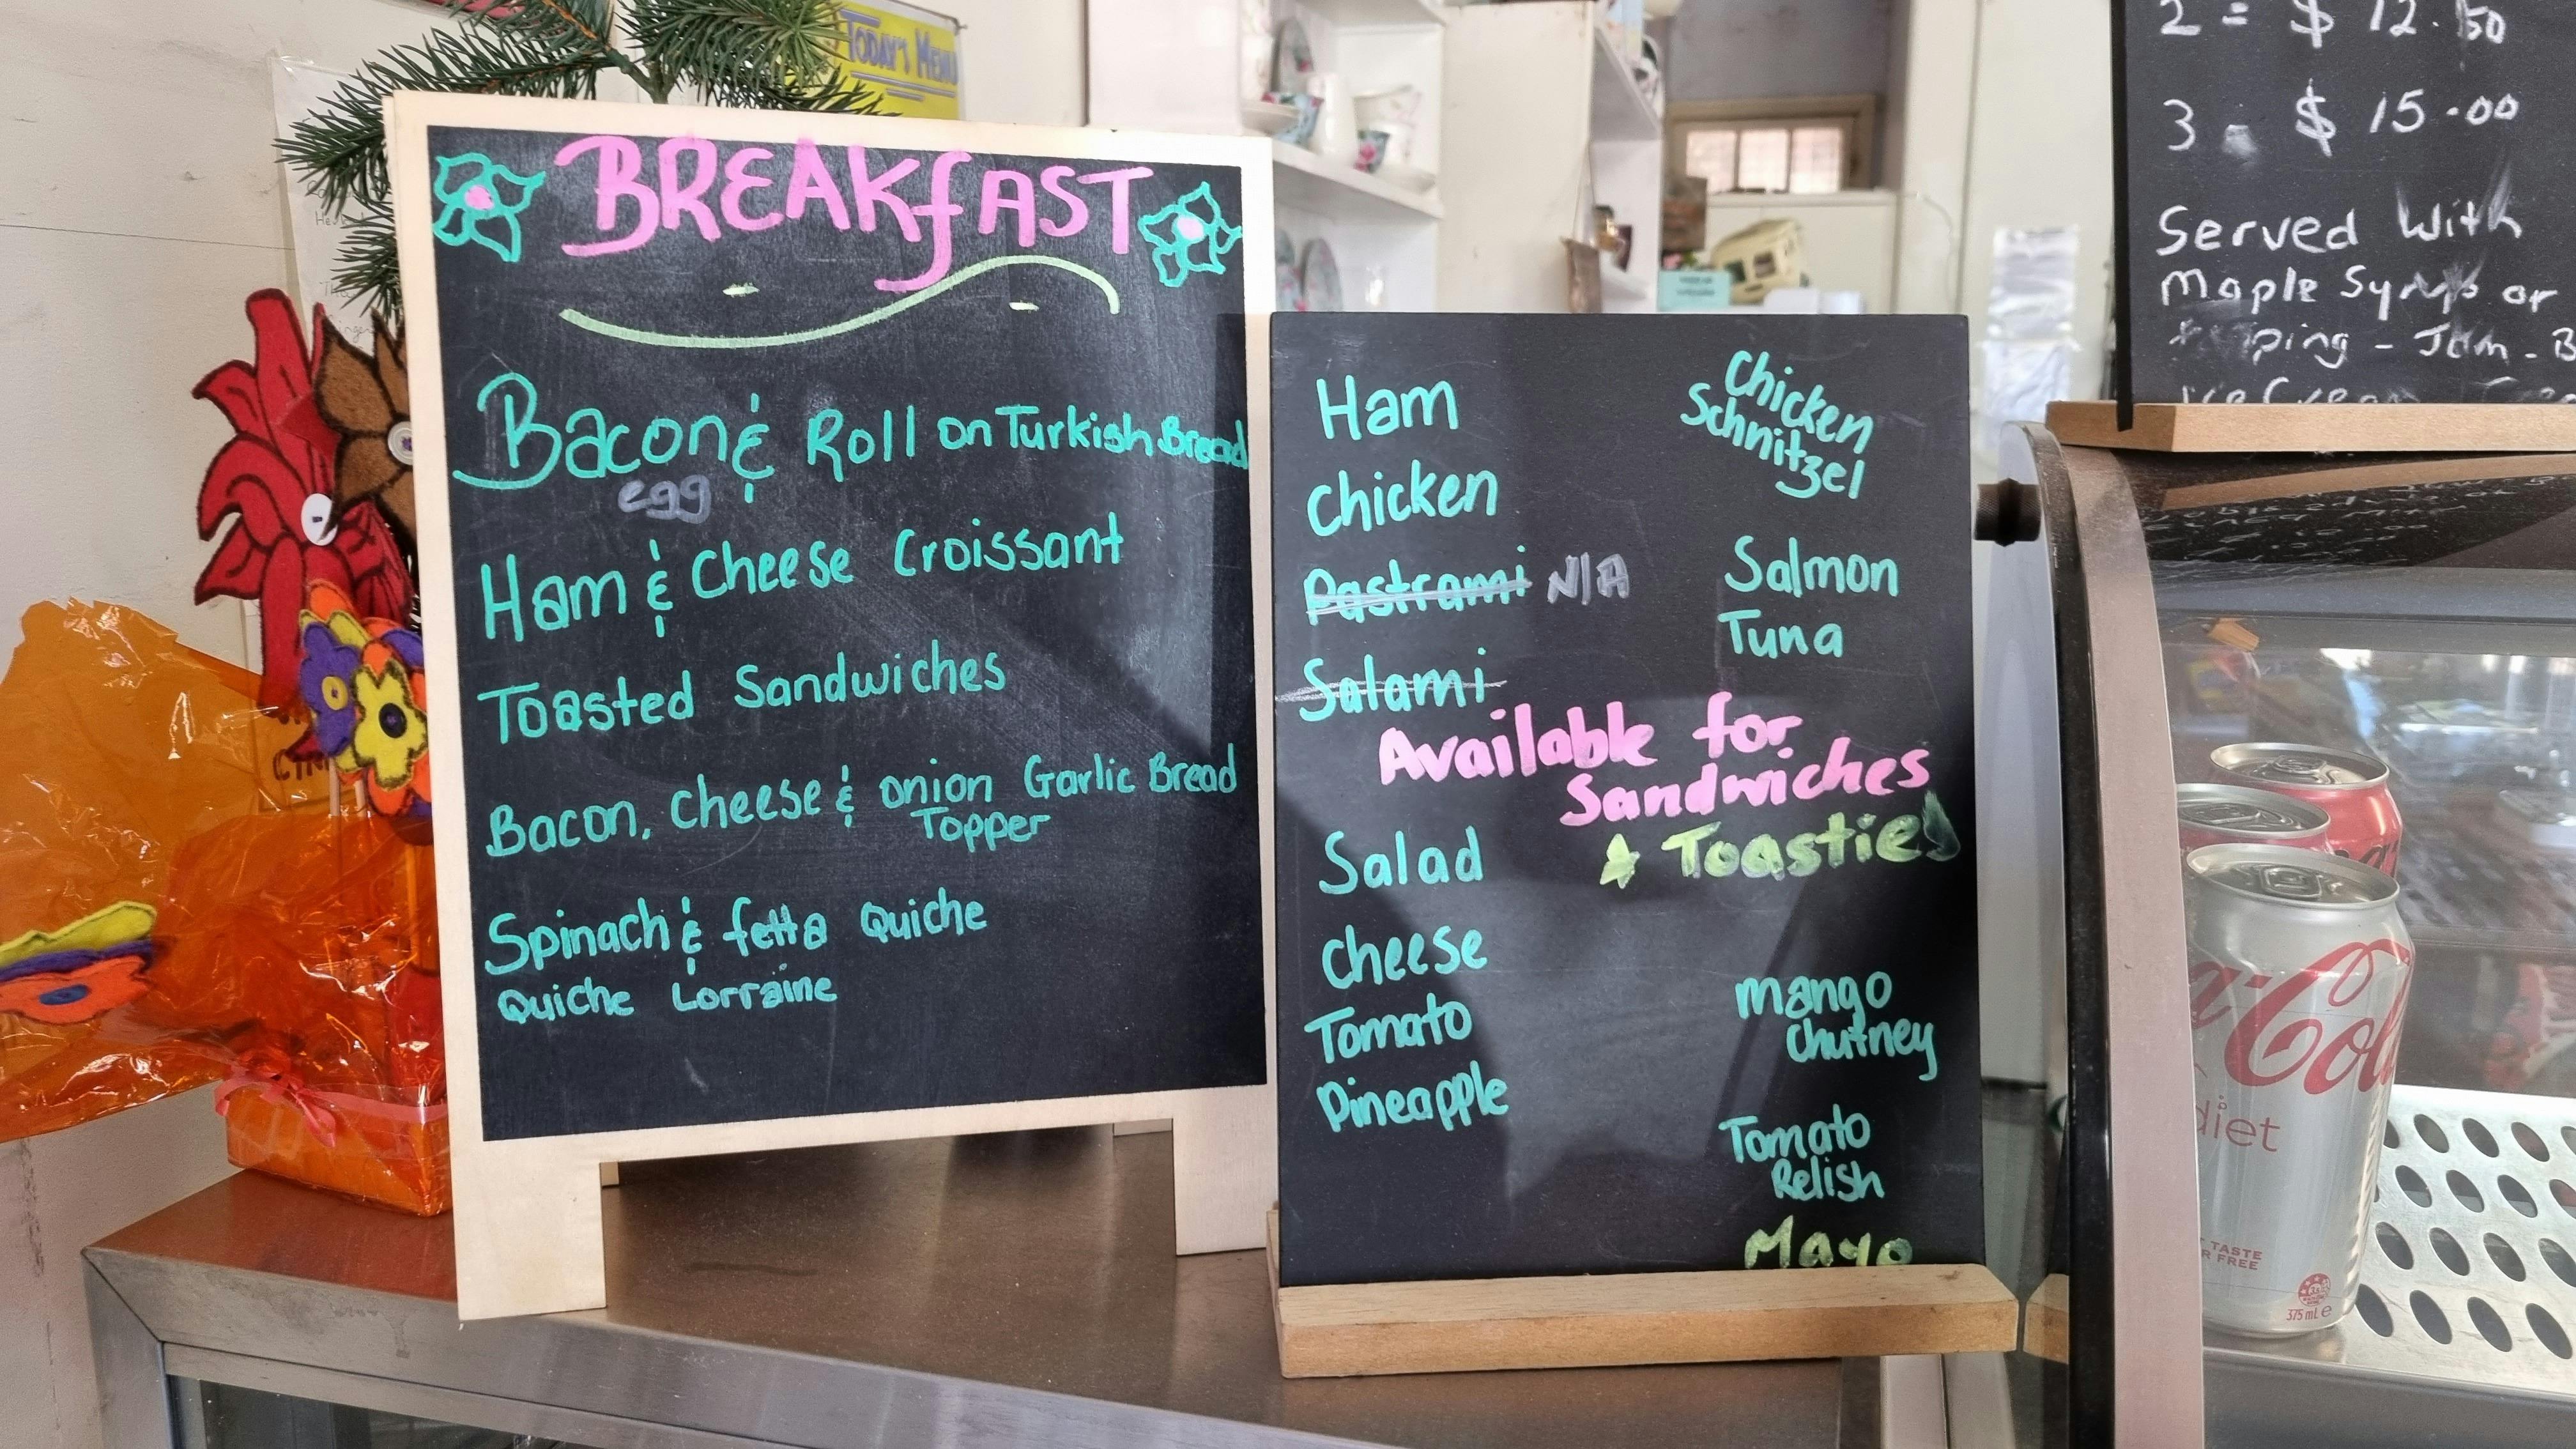 TODAY'S MENU
BREAKfAST
Bacon & Roll on Turkish Bread
egg
Ham & Cheese Croissant
Toasted Sandwiches
Bacon, Cheese & onion Garlic Bread
Topper
Spinach & fetta Quiche
Quiche Lorraine
Ham
Chicken
Pastrami N/A
Salami
Chicken
Schnitzel
Salmon
Tuna
Available for
Sandwiches
& Toasties
Salad
Cheese
Tomato
Pineapple
Mango
Chutney
Tomato
Relish
Mayo
2 = $ 12.50
3 = $ 15.00
Served With
Maple Syrup or
- Jam -
Ice Cream
diet
TASTE
FREE
375 mL e